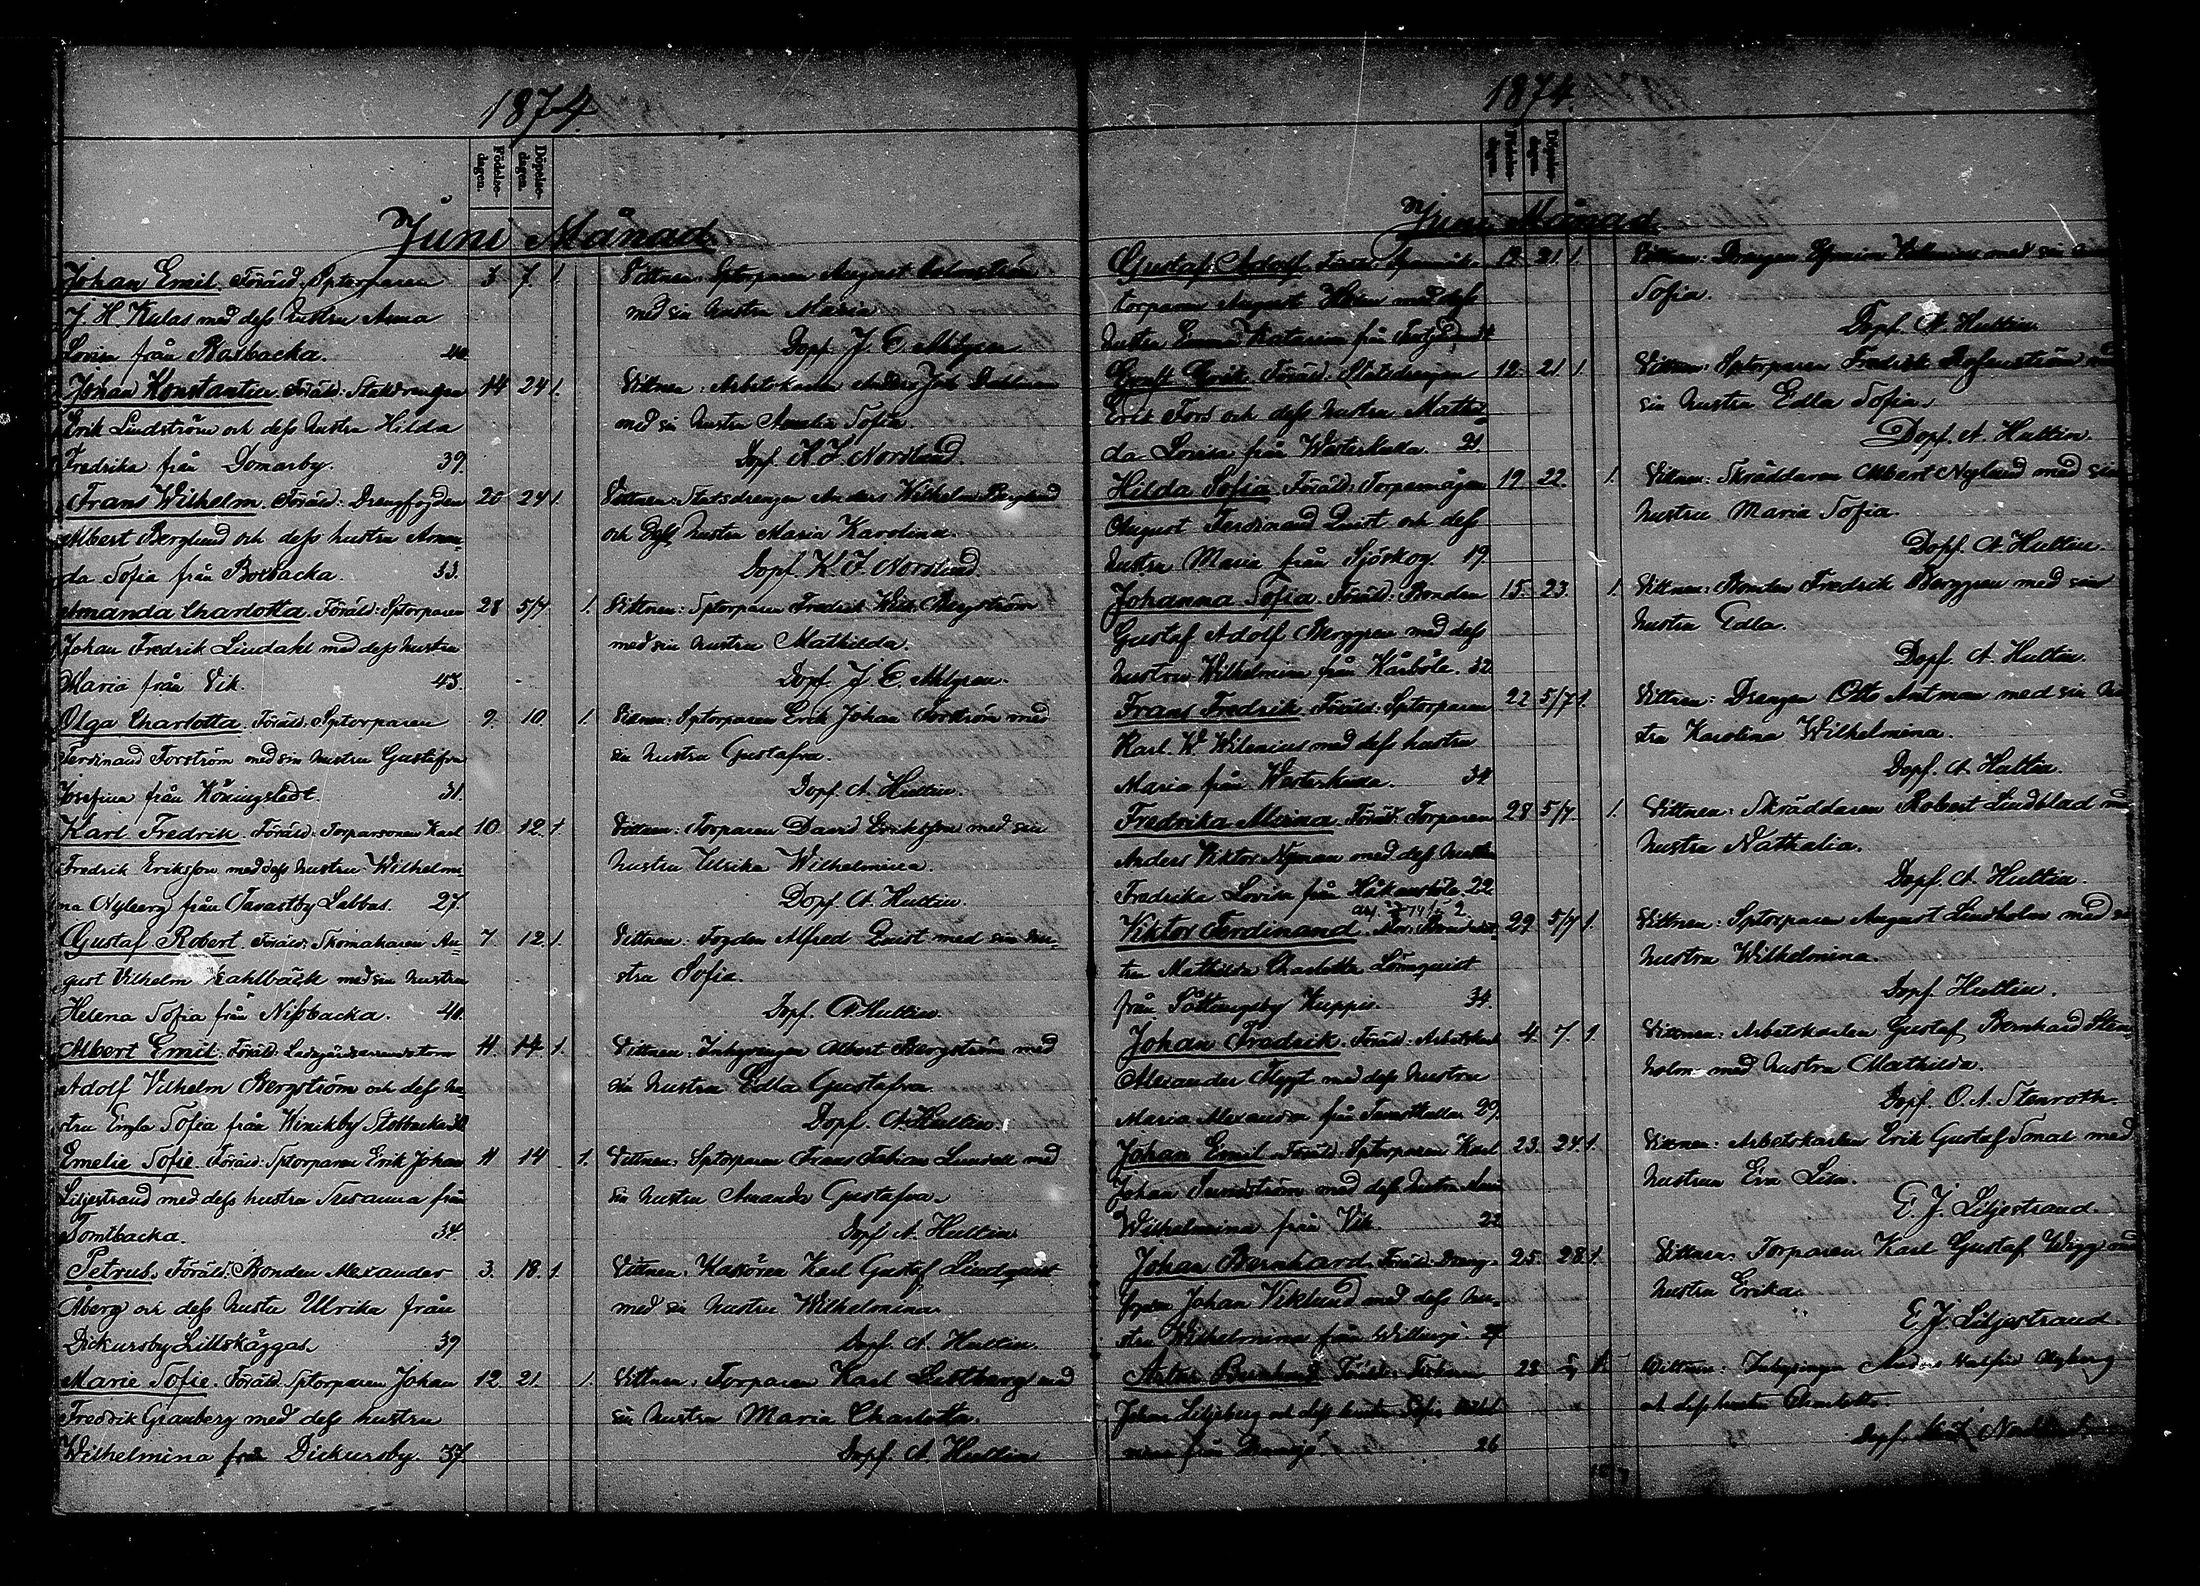 1874.
Födelse-dagen. Döpelse-dagen.
Juni Månad
Johan Emil. Föräld: Sptorparen 3 7. 1. Vittnen: Sptorparen August Holmström
J. H. Kulas med dess hustru Anna med sin hustru Maria
Lovisa från Rasbacka. 40. Döpf. J. E. Ahlgren
Johan Konstantin. Föräld: Statdrengen 14 24 1. Vittnen: Arbetskarlen Anders Joh. Dahlman
Erik Lindström och dess hustru Hilda med sin hustru Amalia Sofia.
Fredrika från Domarby. 39. Döpf. K. F. Nordlund.
Frans Wilhelm. Föräld: Drengfogden 20 24 1. Vittnen: Statsdrengen Anders Wilhelm Berglund
Albert Berglund och dess hustru Aman- och dess hustru Maria Karolina.
da Sofia från Boxbacka. 33. Döpf. K. F. Nordlund
Amanda Charlotta. Föräld: Sptorparen 28 5/7 1. Vittnen: Sptorparen Fredrik Wilh. Bergström
Johan Fredrik Lindahl med dess hustru med sin hustru Mathilda.
Maria från Vik. 43. Döpf. J. E. Ahlgren.
Olga Charlotta. Föräld: Sptorparen 9. 10. 1. Vittnen: Sptorparen Erik Johan Forström med
Ferdinand Forström med sin hustru Gustafva sin hustru Gustafva.
Josefina från Köningstedt. 31. Döpf. A. Hultin.
Karl Fredrik. Föräld: Torparsonen Karl 10 12. 1. Vittnen: Torparen David Eriksson med sin
Fredrik Eriksson med dess hustru Wilhelmi- hustru Ulrika Wilhelmina.
na Nyberg från Tavastby Labbas. 27. Döpf. A. Hultin.
Gustaf Robert. Föräld: Skomakaren Au- 7 12 1. Vittnen: Fogden Alfred Quist med sin hu-
gust Vilhelm Kahlbäck med sin hustru stru Sofia.
Helena Sofia från Nissbacka. 40. Döpf. A. Hultin.
Albert Emil. Föräld: Ladugårdsarendatorn 11. 14 1. Vittnen: Inhysingen Albert Bergström med
Adolf Vilhelm Bergström och dess hu- sin hustru Edla Gustafva
stru Engla Sofia från Winikby Stobbacka 30 Döpf. A. Hultin.
Emelie Sofie. Föräld: Sptorparen Erik Johan 11 14 1. Vittnen: Sptorparen Frans Fabian Lundell med
Liljestrand med dess hustru Susanna från sin hustru Amanda Gustafva.
Tomtbacka. 34. Döpf. A. Hultin
Petrus. Föräld: Bonden Alexander 3. 18. 1. Vittnen: Kaskören Karl Gustaf Lindquist
Åberg och dess hustru Ulrika från med sin hustru Wilhelmina.
Dickursby Lillskäggas. 39 Döpf. A. Hultin.
Marie Sofie. Föräld: Sptorparen Johan 12. 21. 1. Vittnen: Torparen Karl Lustberg med
Fredrik Granberg med dess hustru sin hustru Maria Charlotta.
Wilhelmina från Dickursby. 37. Döpf. A. Hultin
1874.
Födelse-dagen. Döpelse-dagen.
Juni Månad.
Gustaf Adolf. Föräld: 12. 21 1. Vittnen: Drengen Wilenius med sin
torparen August Herén med dess Sofia.
hustru Emma Katarina från 34 Döpf. A. Hultin.
Gerik. Föräld: Statsdrengen 12. 21 1. Vittnen: Sptorparen Fredrik
Erik Fors och dess hustru Mathil- sin hustru Edla Sofia.
da Lovisa från Westerkulla. 21. Döpf. A. Hultin.
Hilda Sofia. Föräld: Torpemågen 19 22. 1. Vittnen: Skräddaren Albert Nylund med sin
August Ferdinand Quist och dess hustru Maria Sofia.
hustru Maria från Sjöskog. 19. Döpf. A. Hultin.
Johanna Sofia. Föräld: Bonden 15. 23. 1. Vittnen: Bonden Fredrik Berggren med sin
Gustaf Adolf Berggren med dess hustru Edla.
hustru Wilhelmina från Kårböle. 32 Döpf. A. Hultin.
Frans Fredrik. Föräld: Sptorparen 22 5/7 1. Vittnen: Drengen Otto Antman med sin hu-
Karl W. Wilenius med dess hustru stru Karolina Wilhelmina.
Maria från Westerkulla. 34 Döpf. A. Hultin.
Fredrika Maina. Föräld: Torparen 28 5/7 1. Vittnen: Skräddaren Robert Lindblad med
Anders Viktor Nyman med dess hustru hustru Nathalia.
Fredrika Lovisa från Håkansböle. 22 Döpf. A. Hultin.
Viktor Ferdinand. Mor: Bonde- 29 5/7 1. Vittnen: Sptorparen August Lindholm med
Mathilda Charlotta Lönnquist hustru Wilhelmina.
från Såttungsby Kuppis. 34. Döpf. Hultin.
Johan Fredrik. Föräld: Arbetskarl 4. 7. 1. Vittnen: Arbetskarlen Gustaf Bernhard Sten-
Alexander Flygt med dess hustru holm med hustru Mathilda.
Maria Alexandra från 29. Döpf. O. A. Stenroth.
Johan Emil. Föräld: Sptorparen Karl 23. 24. 1. Vittnen: Arbetskarlen Erik Gustaf Smal med
Johan Sundström med dess hustru hustrun Eva Lisa.
Wilhelmina från Vik. 22 E. J. Liljestrand.
Johan Bernhard. Föräld: Dreng- 25. 28. 1. Vittnen: Torparen Karl Gustaf Wigg med
fogden Johan Viklund med dess hu- hustru Erika.
stru Wilhelmina från Willinge. 27. E. J. Liljestrand.
Artur Bernhard. Föräld: 28 1. Vittnen: Inhysingen Anders Nyberg
Johan Liljeberg och dess hustru Sofia Wilhel- och dess hustru Charlotta.
mina från 26 Döpf. K. F. Nordlund.